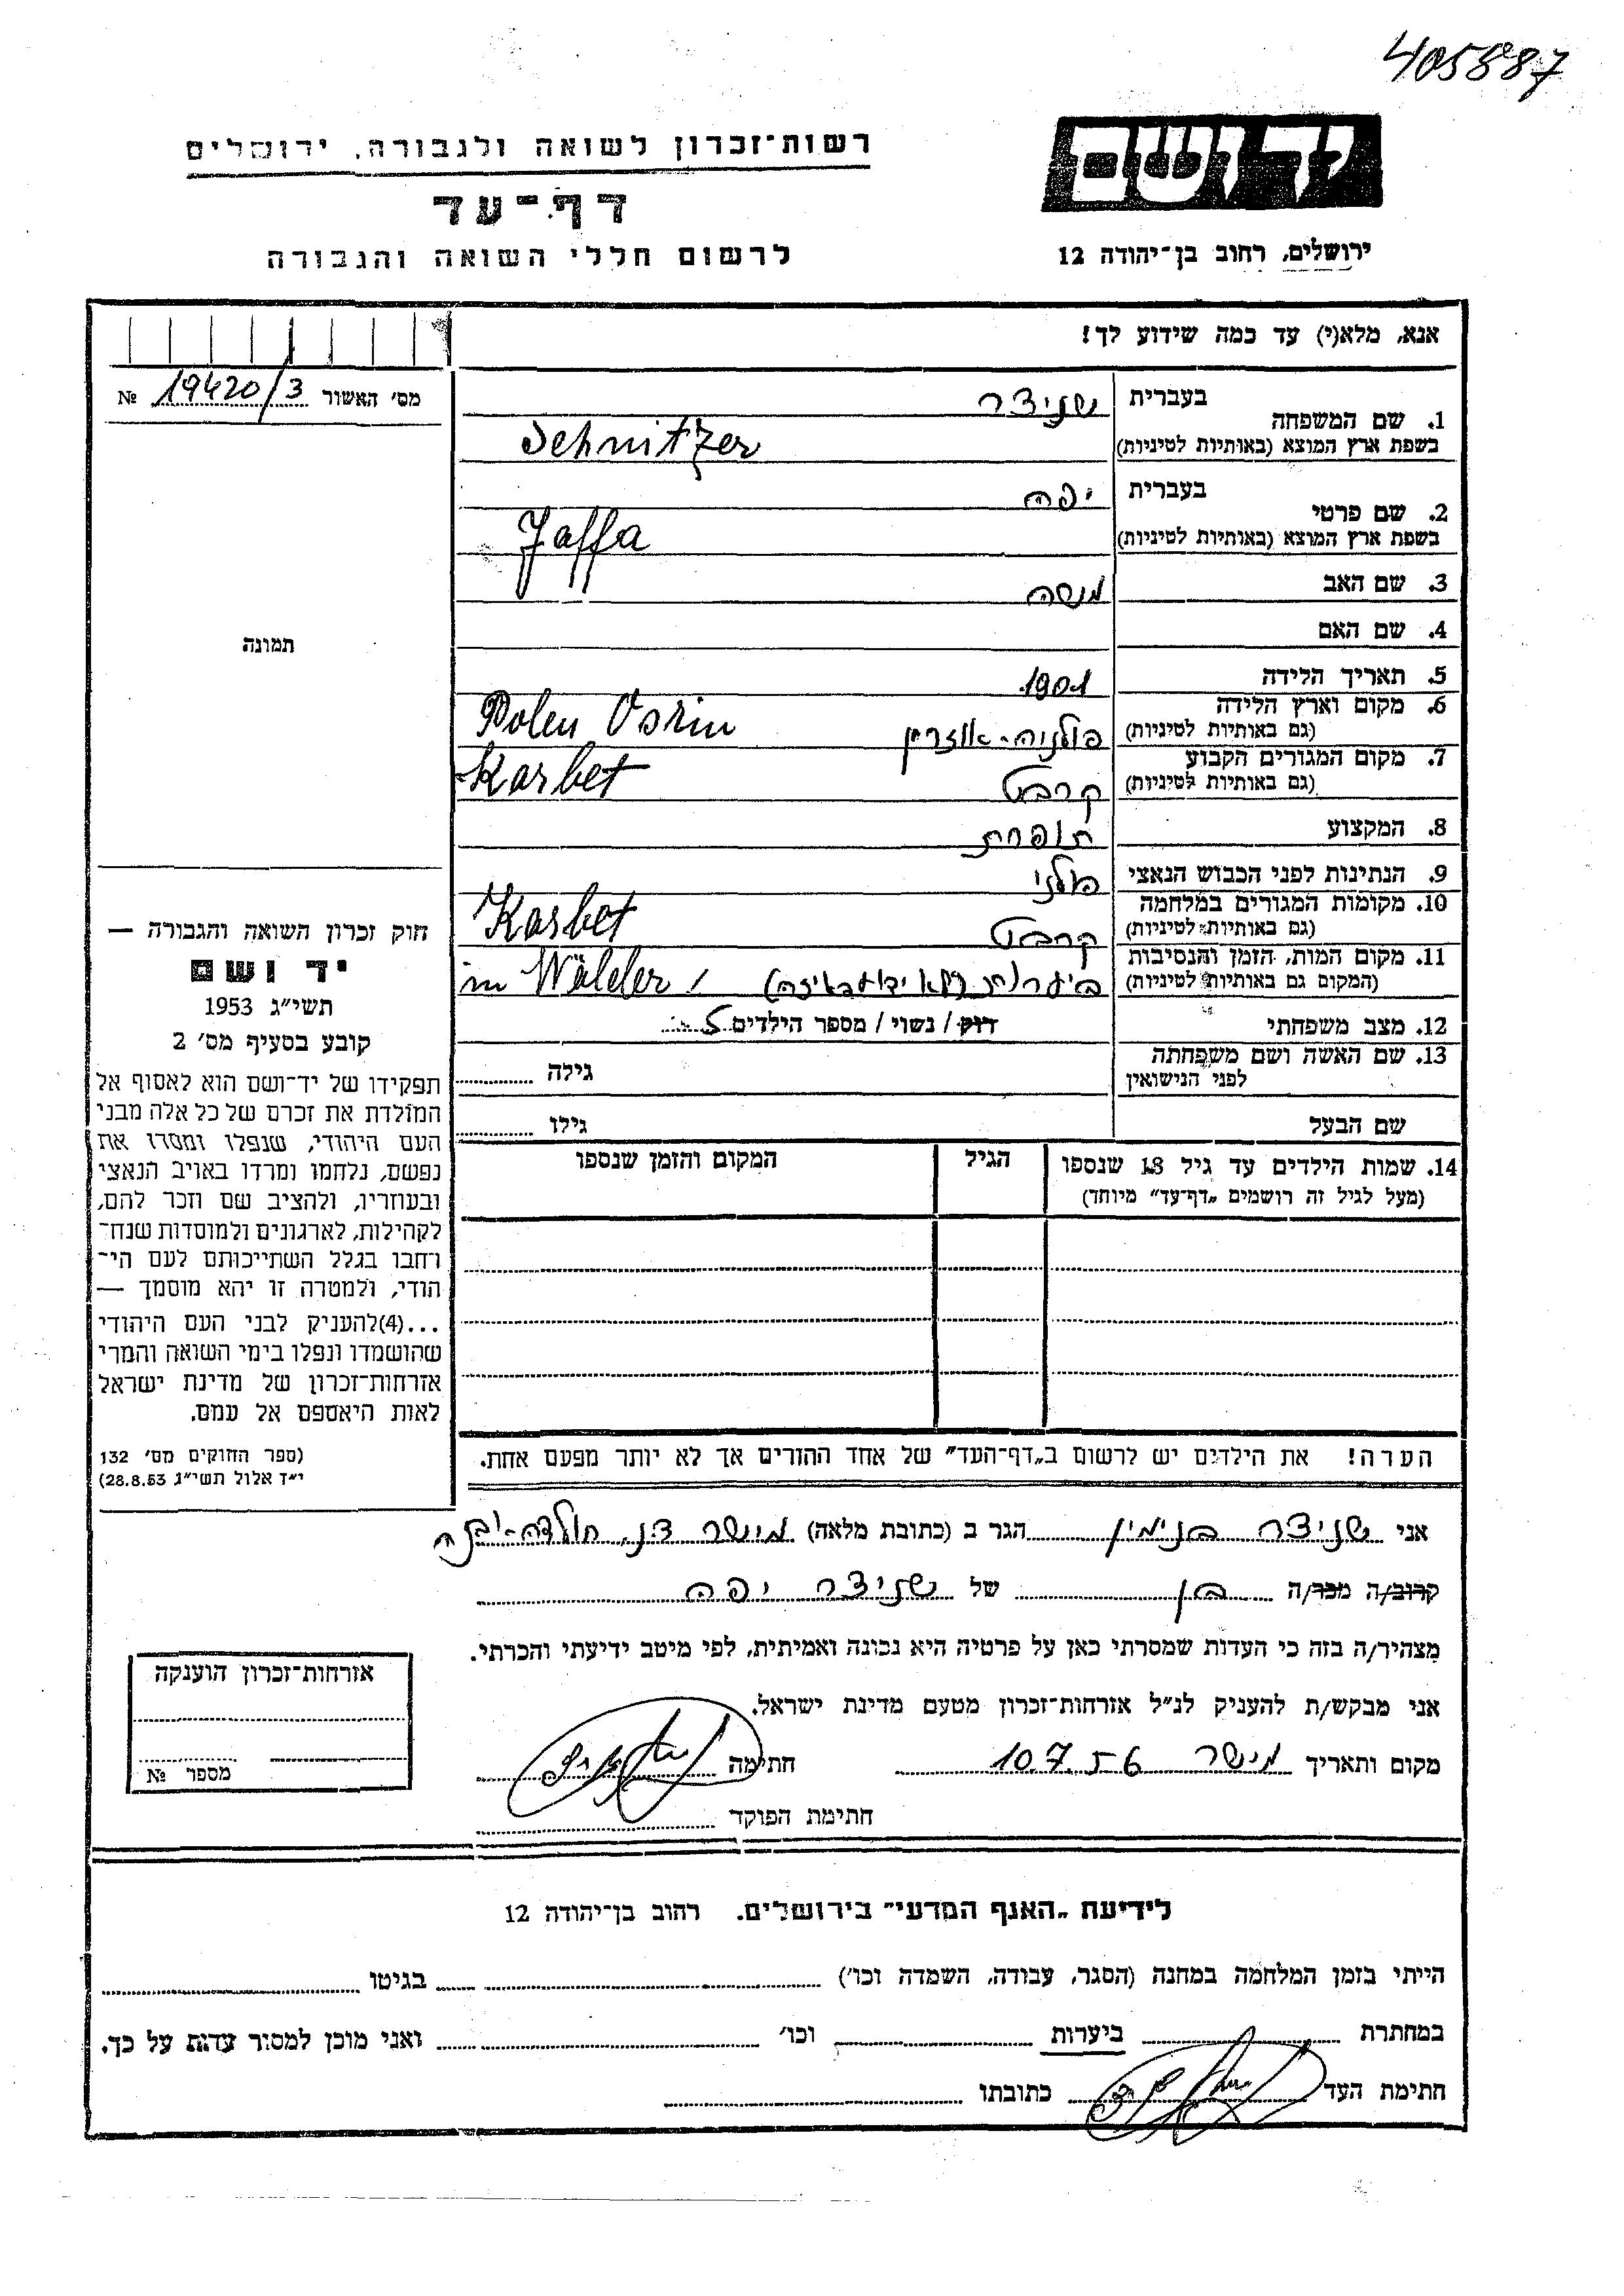 405887
יד ושם
ירושלים, רחוב בן־יהודה 12
רשות־זכרון לשואה ולגבורה, ירושלים
דף־עד
לרשום חללי השואה והגבורה
אנא, מלא(י) עד כמה שידוע לך!
מס׳ האשור 19420/3 №
תמונה
1. שם המשפחה בעברית שניצר
בשפת ארץ המוצא (באותיות לטיניות) Schnitzer
2. שם פרטי בעברית יפה
בשפת ארץ המוצא (באותיות לטיניות) Jaffa
3. שם האב משה
4. שם האם
5. תאריך הלידה 1901
6. מקום וארץ הלידה
(גם באותיות לטיניות) פולניה - אוזרין Polen Osrin
7. מקום המגורים הקבוע
(גם באותיות לטיניות) קרבט Karbet
8. המקצוע תופרת
9. הנתינות לפני הכבוש הנאצי פולני
10. מקומות המגורים במלחמה
(גם באותיות לטיניות) קרבט Karbet
11. מקום המות, הזמן והנסיבות
(המקום גם באותיות לטיניות) ביערות (לא ידוע באיזה) in Wälder
12. מצב משפחתי רווק / נשוי / מספר הילדים 5
13. שם האשה ושם משפחתה
לפני הנישואין גילה
שם הבעל גילו
14. שמות הילדים עד גיל 18 שנספו הגיל המקום והזמן שנספו
(מעל לגיל זה רושמים „דף־עד״ מיוחד)
חוק זכרון השואה והגבורה —
יד ושם
תשי״ג 1953
קובע בסעיף מס׳ 2
תפקידו של יד־ושם הוא לאסוף אל
המולדת את זכרם של כל אלה מבני
העם היהודי, שנפלו ומסרו את
נפשם, נלחמו ומרדו באויב הנאצי
ובעוזריו, ולהציב שם וזכר להם,
לקהילות, לארגונים ולמוסדות שנח־
רחבו בגלל השתייכותם לעם הי־
הודי, ולמטרה זו יהא מוסמך —
...(4)להעניק לבני העם היהודי
שהושמדו ונפלו בימי השואה והמרי
אזרחות־זכרון של מדינת ישראל
לאות היאספם אל עמם.
(ספר החוקים מס׳ 132
י״ד אלול תשי״ג 28.8.53)
הערה! את הילדים יש לרשום ב„דף־העד״ של אחד ההורים אך לא יותר מפעם אחת.
אני שניצר בנימין הגר ב (כתובת מלאה) מישר ד.נ. חולדה-יבנה
קרוב/ה מכר/ה בן של שניצר יפה
מצהיר/ה בזה כי העדות שמסרתי כאן על פרטיה היא נכונה ואמיתית, לפי מיטב ידיעתי והכרתי.
אני מבקש/ת להעניק לנ״ל אזרחות־זכרון מטעם מדינת ישראל.
מקום ותאריך מישר 10.7.56 חתימה
חתימת הפוקד
אזרחות־זכרון הוענקה
מספר №
לידיעת „האגף המדעי״ בירושלים. רחוב בן־יהודה 12
הייתי בזמן המלחמה במחנה (הסגר, עבודה, השמדה וכו׳) בגיטו
במחתרת ביערות וכו׳ ואני מוכן למסור עדות על כך.
חתימת העד כתובתו